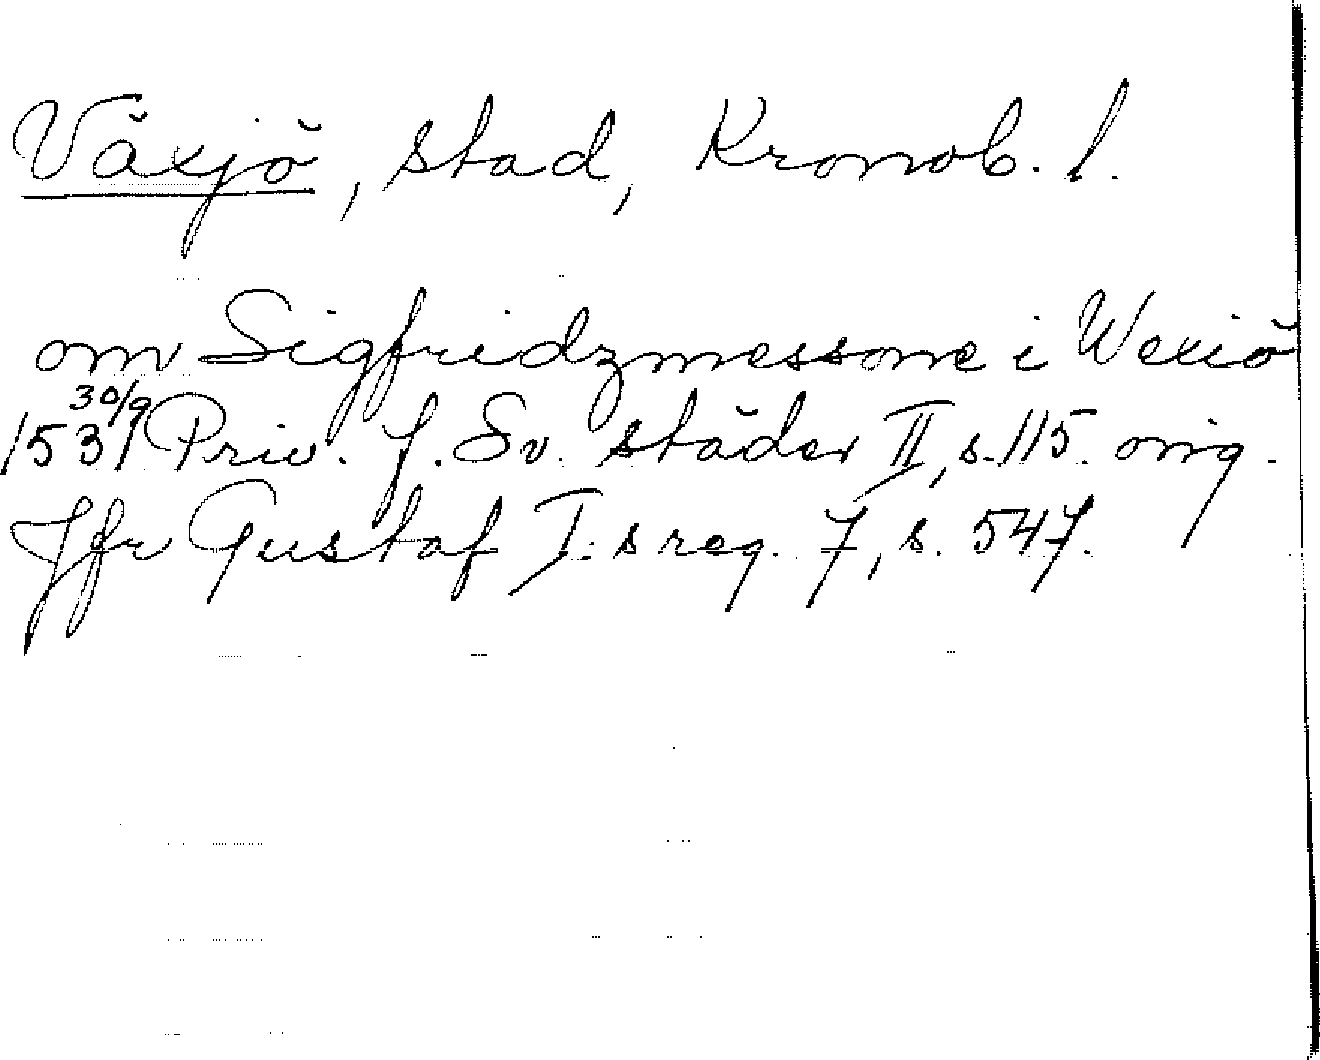 Växjö, stad, Kronob. l.
om Sigfridzmessone i Wexiö
30/9
1531 Priv. f. Sv. städer II, s. 115. orig.
Jfr Gustaf I:s reg. 7, s. 547.